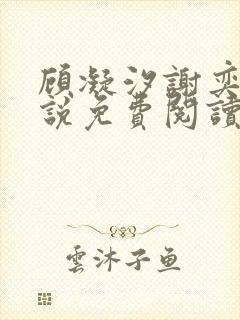 顾凝汐謝奕
說免費閱讀
雲沐子鱼